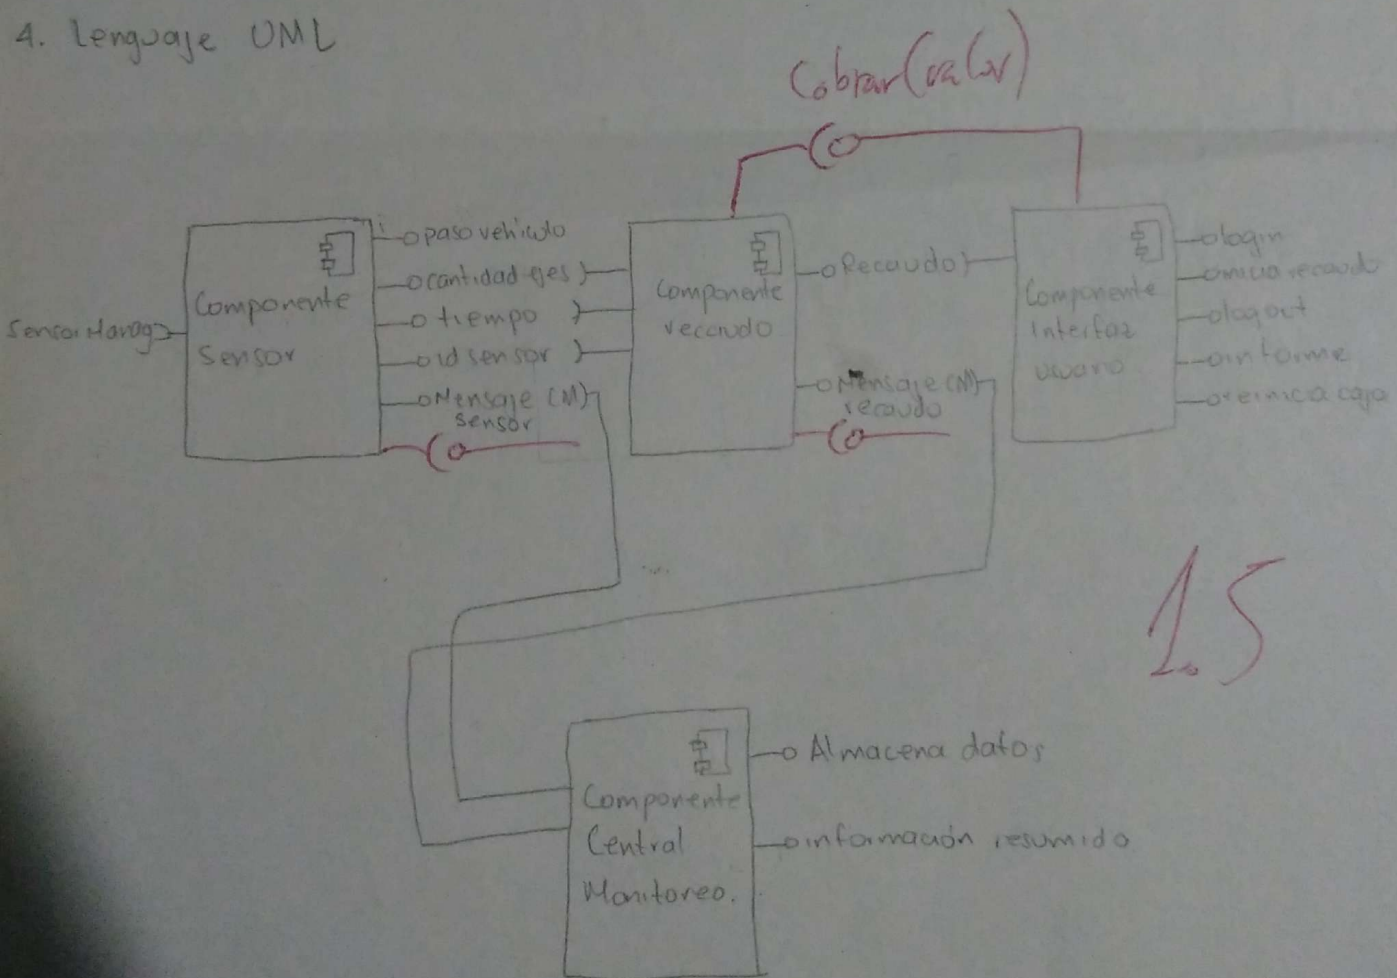 4. Lenguaje UML
Cobrar(valor)
SensorManag
Componente
Sensor
paso vehiculo
cantidad ejes
tiempo
id sensor
Mensaje (M)
sensor
Componente
recaudo
Recaudo
Mensaje (M)
recaudo
Componente
Interfaz
usuario
login
inicia recaudo
logout
informe
reinicia caja
1.5
Componente
Central
Monitoreo.
Almacena datos
información resumida